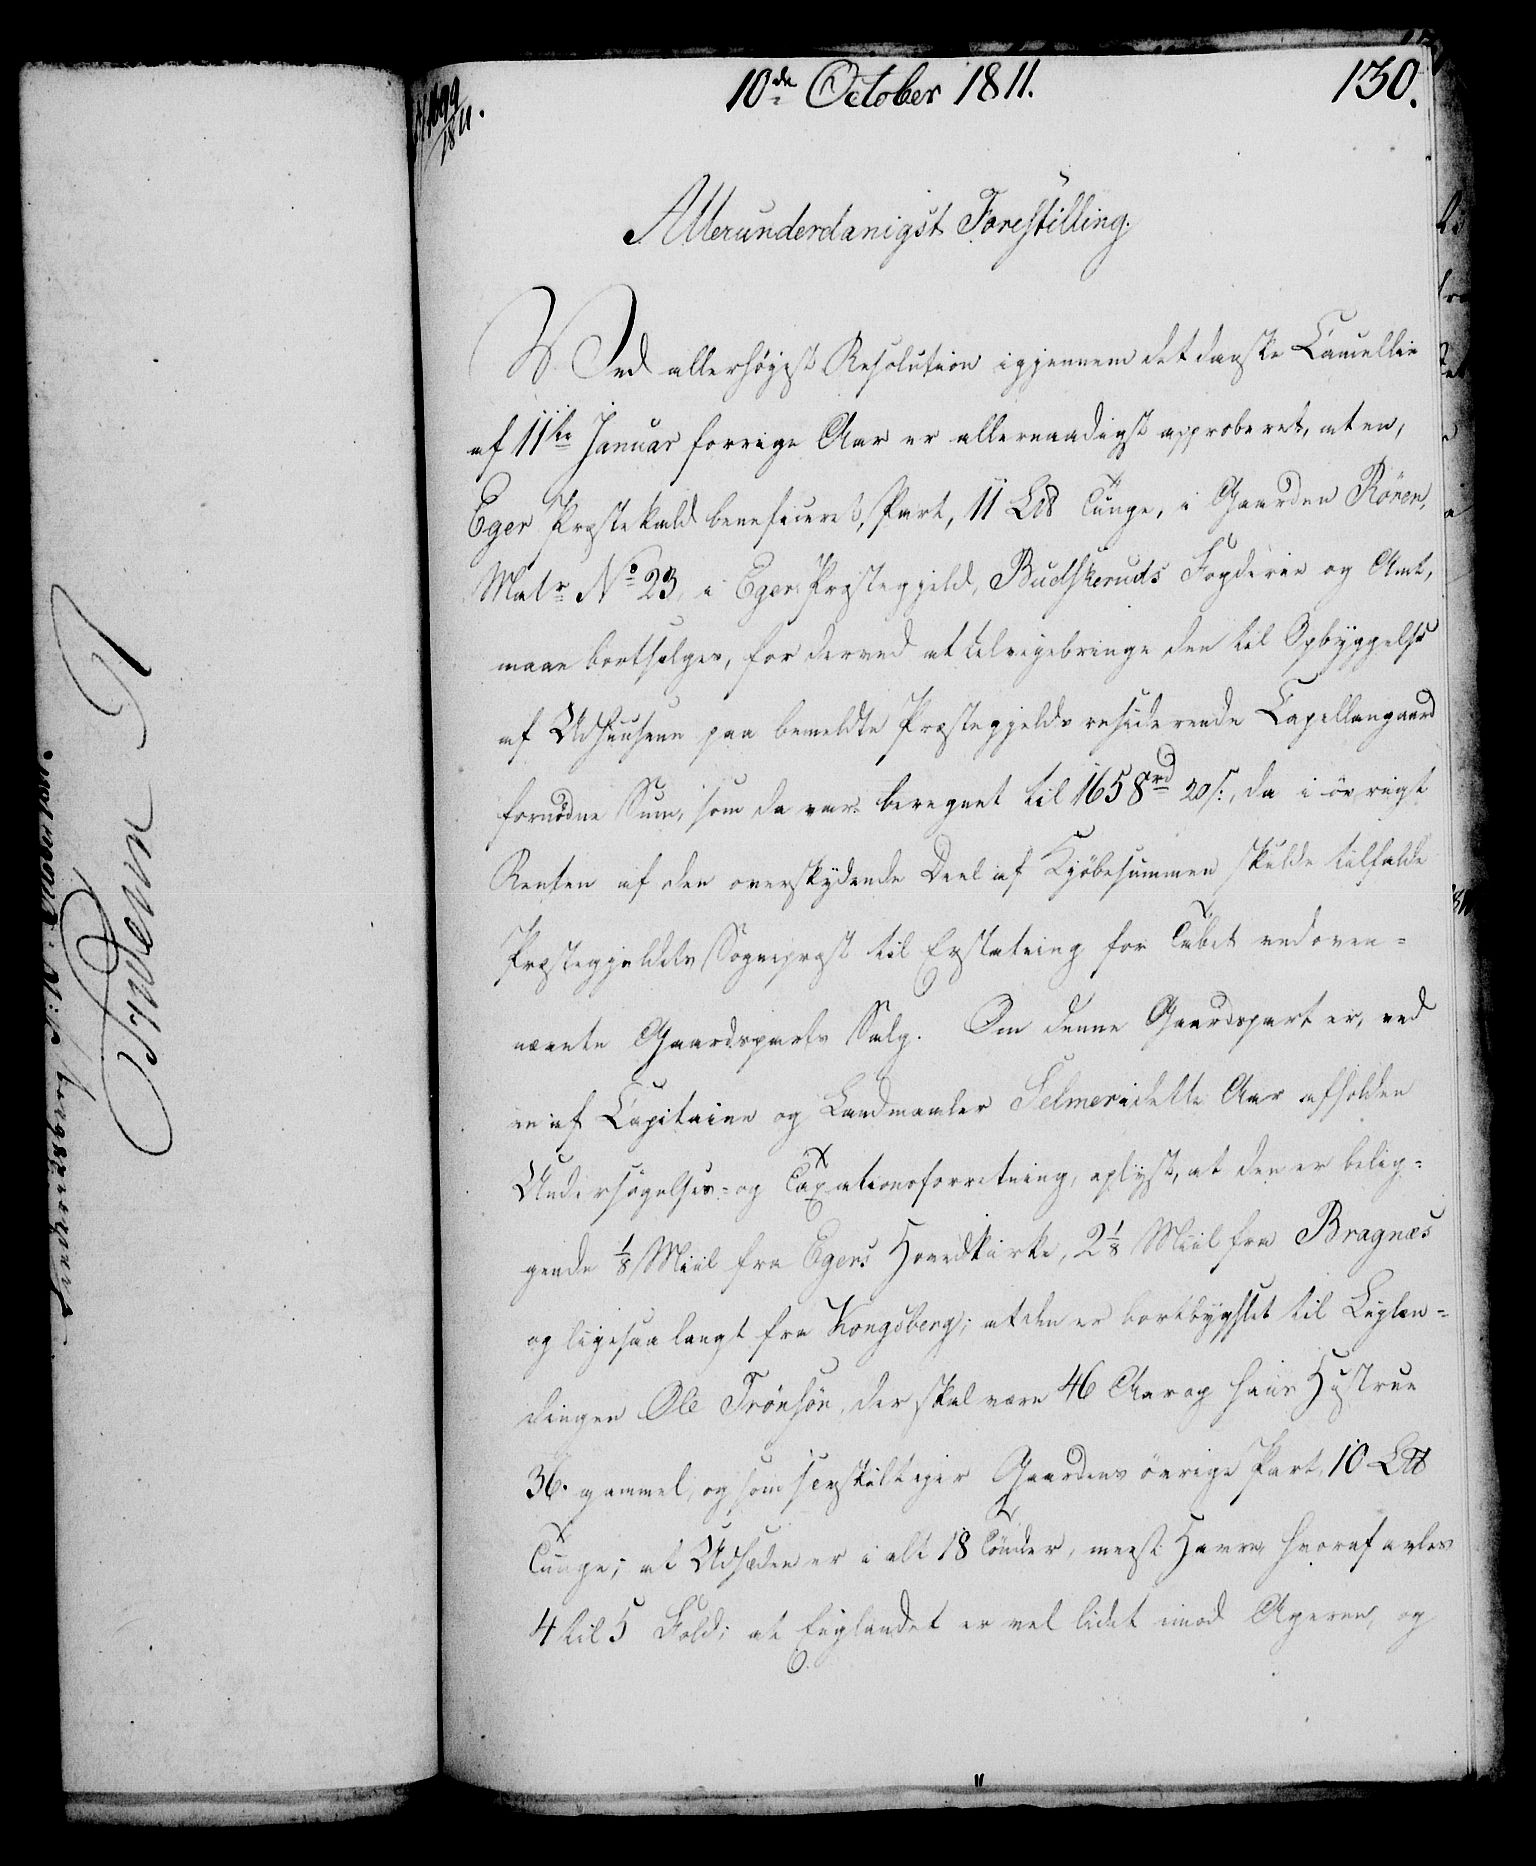 10de October 1811.
130.
1811.
Allerunderdanigst Forestilling.
Ved allerhøyest Resolution igjennem det danske Cancellie
af 11te Januar forrige Aar er allernaadigst approberet, at en,
Eger Præstekald beneficeret, Part, 11 L℔ Tunge, i Gaarden Rönen,
Matr No 23, i Eger Præstegjeld, Budskeruds Fogderie og Amt,
maae bortsælges, for derved at tilveiebringe den til Opbyggelse
af Udhuusene paa bemeldte Præstegjelds residerende Capellangaard
fornødne Sum, som da var beregnet til 1658rd 20s., da i øvrigt
Renten af den overskydende Deel af Kjøbesummen skulde tilfalde
Præstegjeldets Sognepræst til Erstatning for Tabet ved oven-
nævnte Gaardsparts Salg. Om denne Gaardspart er, ved
en af Capitaine og Landmaaler Selmer i dette Aar afholden
Undersøgelses- og Taxationsforretning, oplyst, at den er belig-
gende 1/8 Miil fra Egers Hovedkirke, 2 1/8 Miil fra Bragnæs
og ligesaa langt fra Kongsberg; at den er bortbygslet til Leylæn-
dingen Ole Trönsön, der skal være 46 Aar og hans Hustrue
36. gammel, og som særskilt ejer Gaardens øvrige Part, 10 L℔
Tunge; at Udsæden er i alt 18 Tønder, meest Havre, hvoraf avles
4 til 5 Fold; at Englandet er vel lidet imod Ageren, og